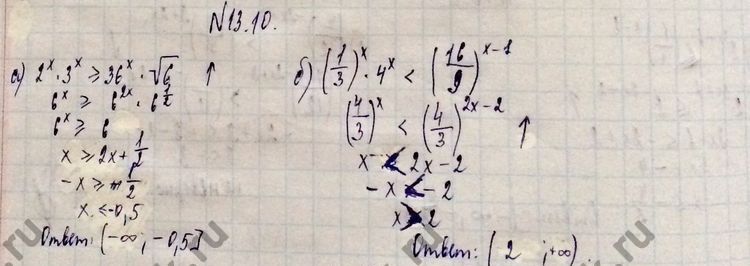 N13.10.
а) 2^x · 3^x ≥ 36^x · √6 ↑
6^x ≥ 6^{2x} · 6^{1/2}
6^x ≥ 6
x ≥ 2x + 1/2
-x ≥ 1/2
x ≤ -0,5
Ответ: (-∞; -0,5]
б) (1/3)^x · 4^x < (16/9)^{x-1}
(4/3)^x < (4/3)^{2x-2} ↑
x < 2x - 2
-x < -2
x > 2
Ответ: (2 ; +∞).